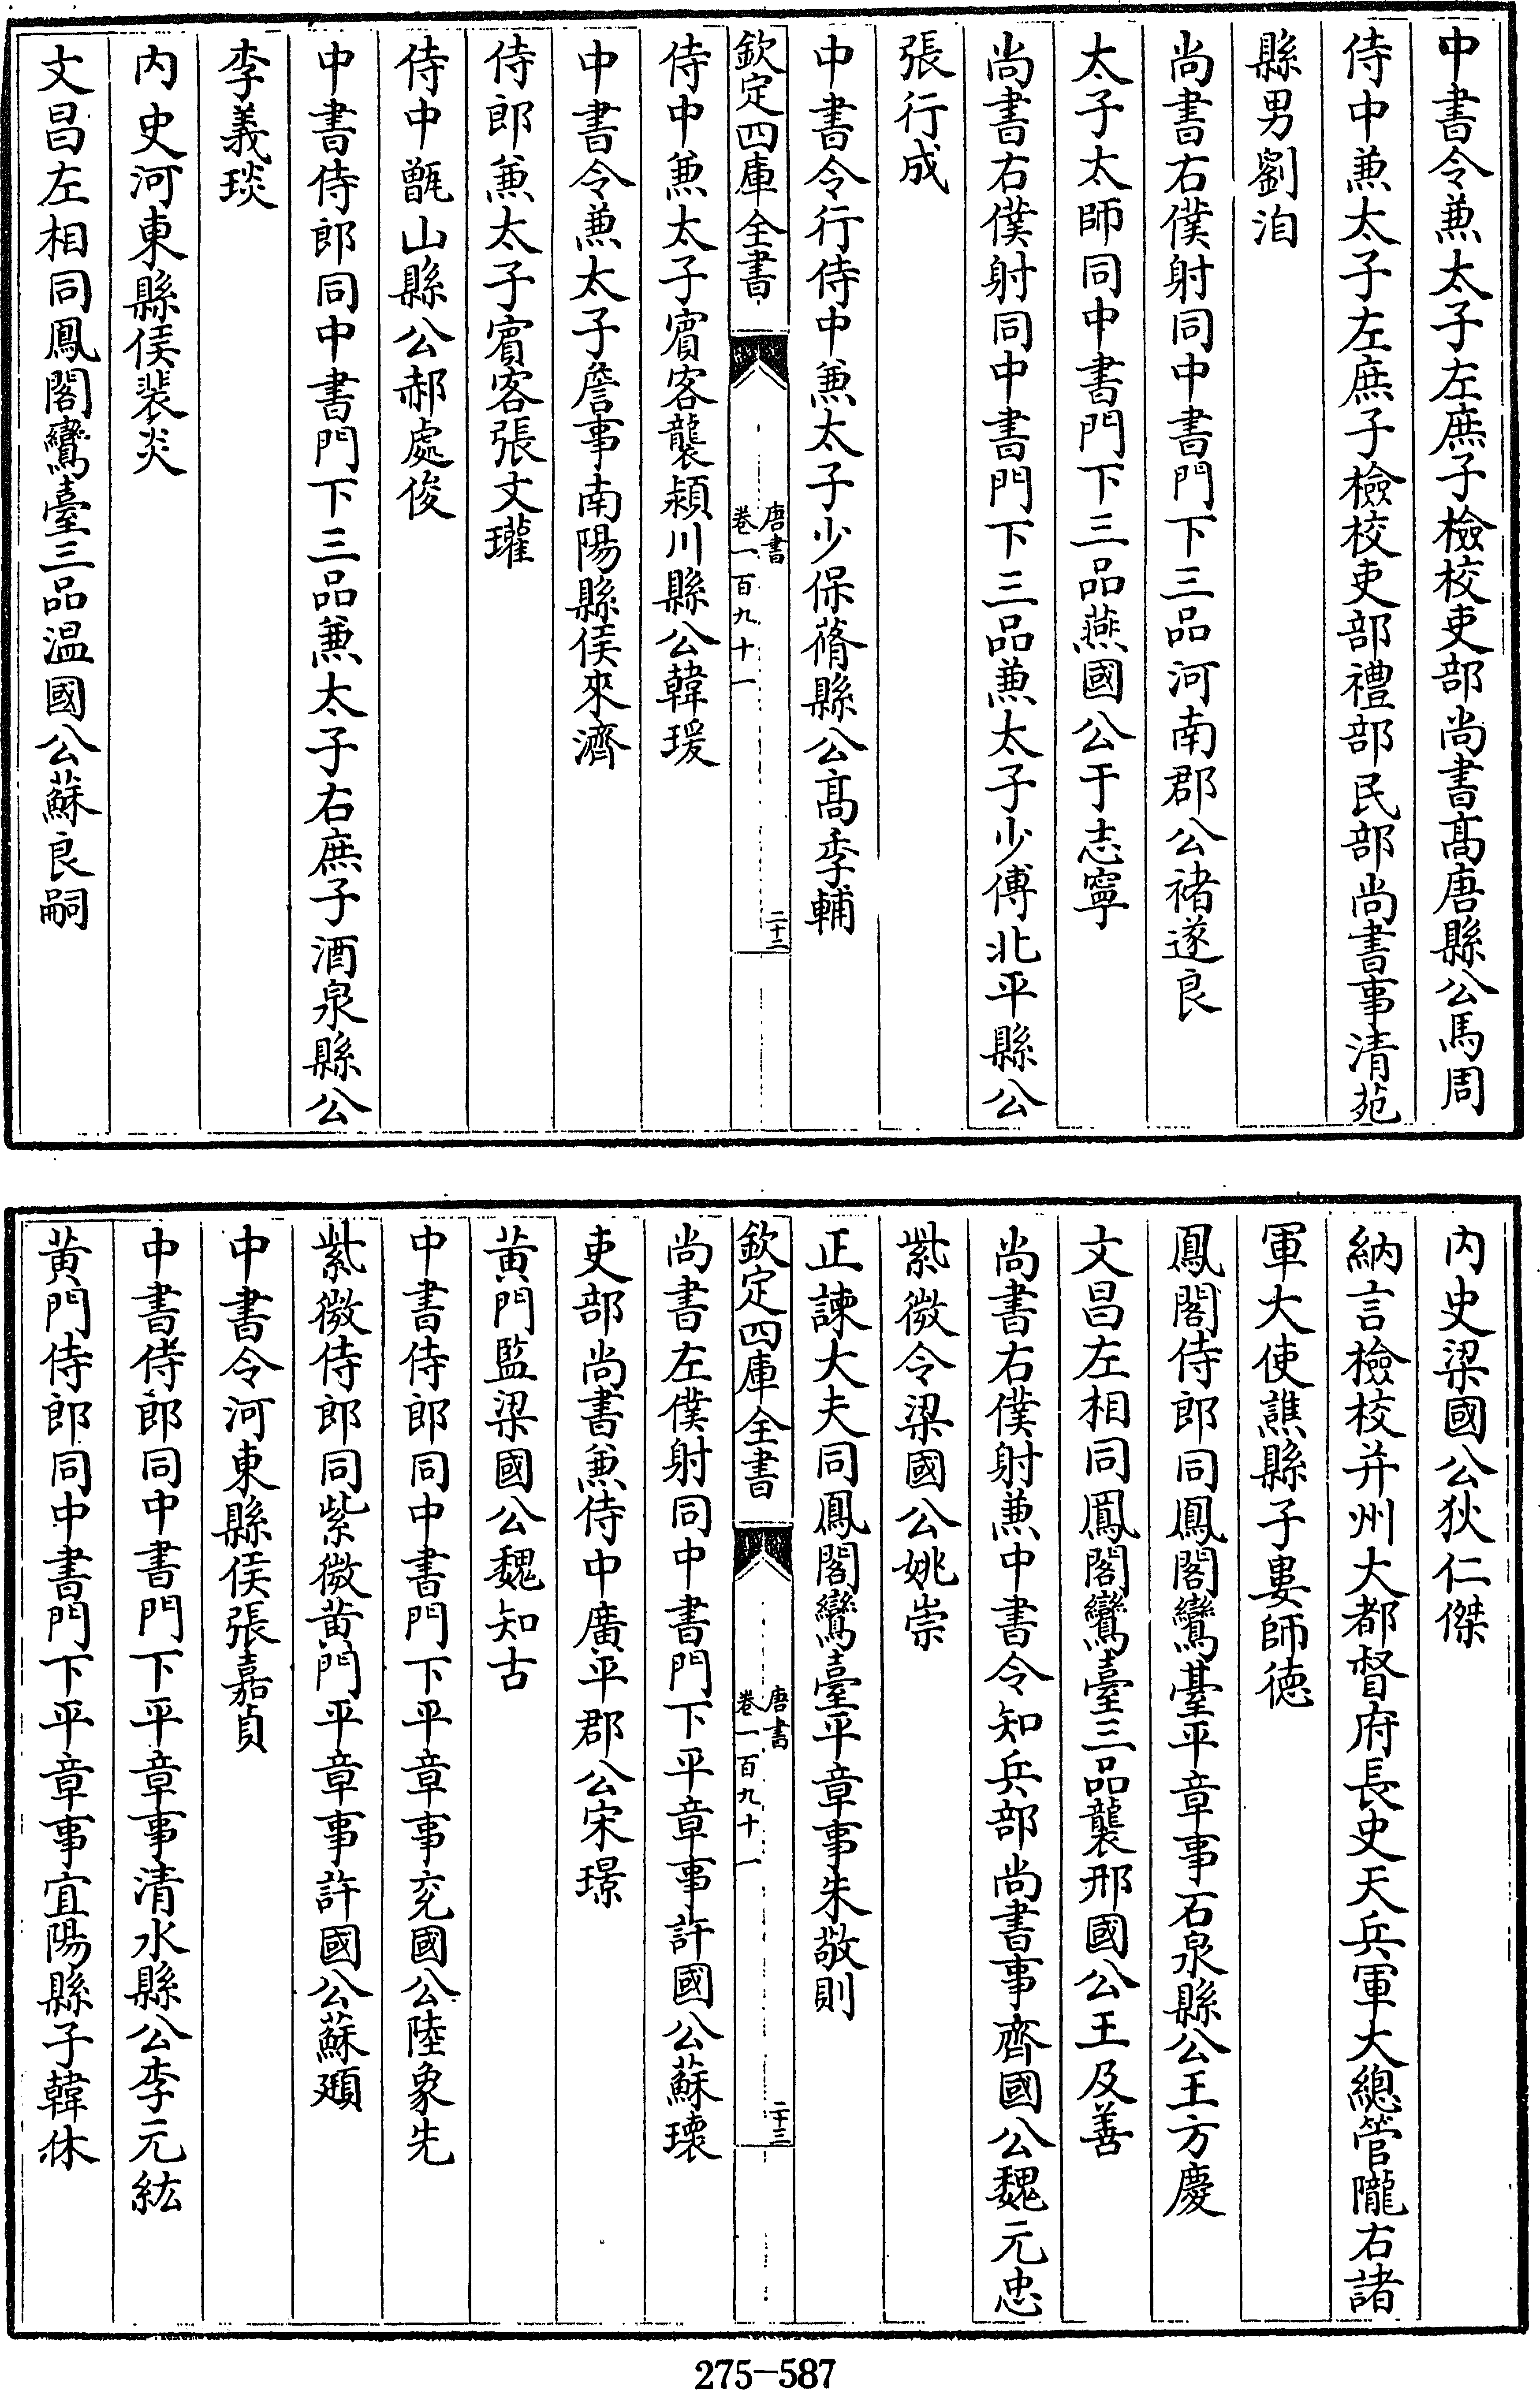 中書令兼太子左庶子檢校吏部尚書髙唐縣公馬周
侍中兼太子左庶子檢校吏部禮部民部尚書事清苑
縣男劉洎
尚書右僕射同中書門下三品河南郡公禇遂良
太子太師同中書門下三品燕國公于志寧
尚書右僕射同中書門下三品兼太子少傅北平縣公
張行成
中書令行侍中兼太子少保蓨縣公髙季輔
欽定四庫全書
唐書
卷一百九十一
二十二
侍中兼太子賓客襲潁川縣公韓瑗
中書令兼太子詹事南陽縣侯來濟
侍郎兼太子賓客張文瓘
侍中甑山縣公郝處俊
中書侍郎同中書門下三品兼太子右庶子酒泉縣公
李義琰
内史河東縣侯裴炎
文昌左相同鳳閣鸞臺三品温國公蘇良嗣
内史梁國公狄仁傑
納言檢校并州大都督府長史天兵軍大總管隴右諸
軍大使譙縣子婁師徳
鳳閣侍郎同鳳閣鸞臺平章事石泉縣公王方慶
文昌左相同鳳閣鸞臺三品襲邢國公王及善
尚書右僕射兼中書令知兵部尚書事齊國公魏元忠
紫微令梁國公姚崇
正諫大夫同鳳閣鸞臺平章事朱敬則
欽定四庫全書
唐書
卷一百九十一
二十三
尚書左僕射同中書門下平章事許國公蘇瓌
吏部尚書兼侍中廣平郡公宋璟
黄門監梁國公魏知古
中書侍郎同中書門下平章事兖國公陸象先
紫微侍郎同紫微黄門平章事許國公蘇頲
中書令河東縣侯張嘉貞
中書侍郎同中書門下平章事清水縣公李元紘
黄門侍郎同中書門下平章事宜陽縣子韓休
275-587